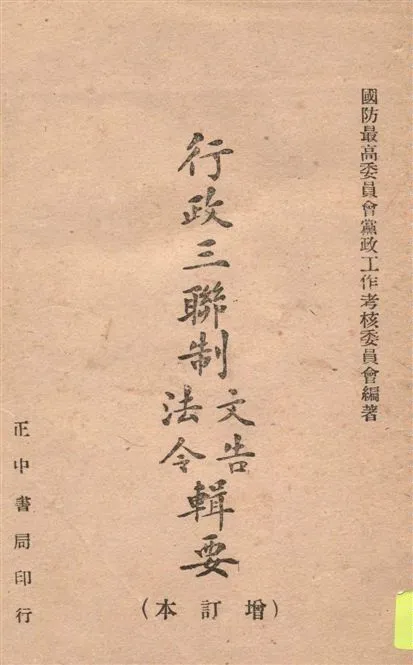 國防最高委員會黨政工作考核委員會編著
行政三聯制文告法令輯要
（增訂本）
正中書局印行